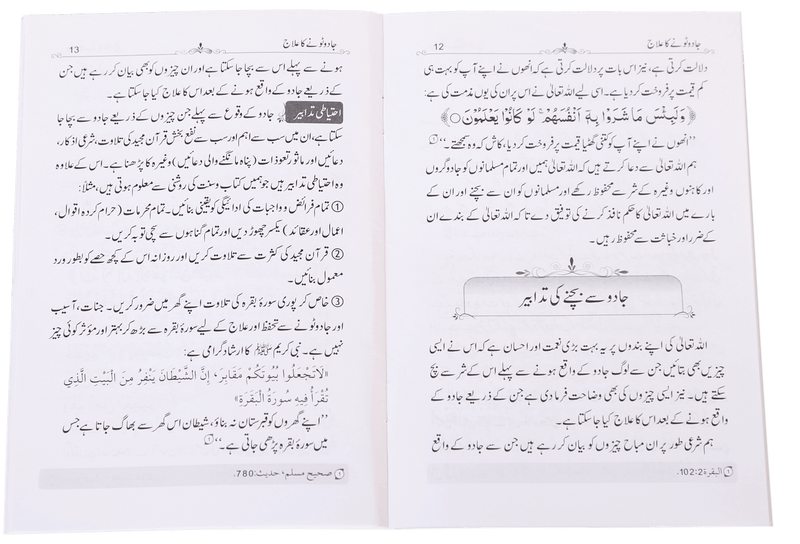 12
جادو ٹونے کا علاج
دلالت کرتی ہے، نیز اس بات پر دلالت کرتی ہے کہ انھوں نے اپنے آپ کو بہت ہی
کم قیمت پر فروخت کر دیا ہے۔ اسی لیے اللہ تعالیٰ نے اس پر ان کی یوں مذمت کی ہے:
﴿وَلَبِئْسَ مَا شَرَوْا بِهٖٓ اَنْفُسَهُمْ ۭ لَوْ كَانُوْا يَعْلَمُوْنَ ○﴾
’’انھوں نے اپنے آپ کو کتنی گھٹیا قیمت پر فروخت کر دیا، کاش کہ وہ سمجھتے۔‘‘①
ہم اللہ تعالیٰ سے دعا کرتے ہیں کہ اللہ تعالیٰ ہمیں اور تمام مسلمانوں کو جادوگروں
اور کاہنوں وغیرہ کے شر سے محفوظ رکھے اور مسلمانوں کو ان سے بچنے اور ان کے
بارے میں اللہ تعالیٰ کا حکم نافذ کرنے کی توفیق دے تا کہ اللہ تعالیٰ کے بندے ان
کے ضرر اور خباثت سے محفوظ رہیں۔
جادو سے بچنے کی تدابیر
اللہ تعالیٰ کی اپنے بندوں پر یہ بہت بڑی نعمت اور احسان ہے کہ اس نے ایسی
چیزیں بھی بتائیں جن سے لوگ جادو کے واقع ہونے سے پہلے اس کے شر سے بچ
سکتے ہیں۔ نیز ایسی چیزوں کی بھی وضاحت فرما دی ہے جن کے ذریعے جادو کے
واقع ہونے کے بعد اس کا علاج کیا جا سکتا ہے۔
ہم شرعی طور پر ان مباح چیزوں کو بیان کر رہے ہیں جن سے جادو کے واقع
① البقرة 102:2.
13
جادو ٹونے کا علاج
ہونے سے پہلے اس سے بچا جا سکتا ہے اور ان چیزوں کو بھی بیان کر رہے ہیں جن
کے ذریعے جادو کے واقع ہونے کے بعد اس کا علاج کیا جا سکتا ہے۔
احتیاطی تدابیر جادو کے وقوع سے پہلے جن چیزوں کے ذریعے جادو سے بچا جا
سکتا ہے، ان میں سب سے اہم اور سب سے نفع بخش قرآن مجید کی تلاوت، شرعی اذکار،
دعائیں اور ماثور تعوذات (پناہ مانگنے والی دعائیں) وغیرہ کا پڑھنا ہے۔ اس کے علاوہ
وہ احتیاطی تدابیر ہیں جو ہمیں کتاب و سنت کی روشنی سے معلوم ہوتی ہیں، مثلاً:
① تمام فرائض و واجبات کی ادائیگی کو یقینی بنائیں۔ تمام محرمات (حرام کردہ اقوال،
اعمال اور عقائد) یکسر چھوڑ دیں اور تمام گناہوں سے سچی توبہ کریں۔
② قرآن مجید کی کثرت سے تلاوت کریں اور روزانہ اس کے کچھ حصے کو بطور ورد
معمول بنائیں۔
③ خاص کر پوری سورۂ بقرہ کی تلاوت اپنے گھر میں ضرور کریں۔ جنات، آسیب
اور جادو ٹونے سے تحفظ اور علاج کے لیے سورۂ بقرہ سے بڑھ کر بہتر اور مؤثر کوئی چیز
نہیں ہے۔ نبی کریم ﷺ کا ارشاد گرامی ہے:
«لَا تَجْعَلُوا بُيُوتَكُمْ مَقَابِرَ، إِنَّ الشَّيْطَانَ يَنْفِرُ مِنَ الْبَيْتِ الَّذِي
تُقْرَأُ فِيهِ سُورَةُ الْبَقَرَةِ»
’’اپنے گھروں کو قبرستان نہ بناؤ، شیطان اس گھر سے بھاگ جاتا ہے جس
میں سورۂ بقرہ پڑھی جاتی ہے۔‘‘①
① صحيح مسلم، حديث: 780.